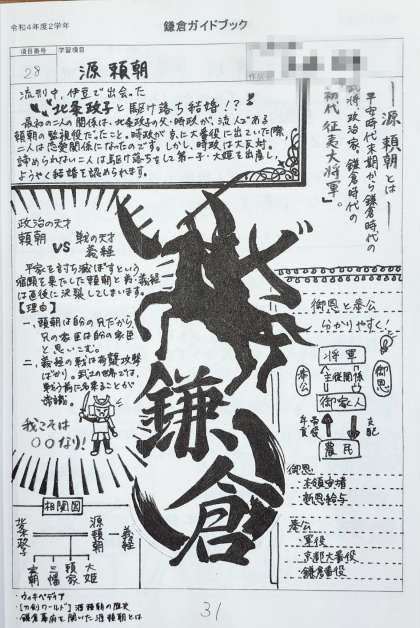 令和4年度2学年
鎌倉ガイドブック
項目番号
学習項目
28
源 頼朝
流刑中、伊豆で出会った
"北条政子と駆け落ち結婚!?"
最初の二人の関係は、北条政子の父・時政が、流人である
頼朝の監視役だったこと。時政が京に大番役に出ていた際、
二人は恋愛関係になったのです。しかし、時政は大反対。
諦められない二人は駆け落ちをして第一子・大姫を出産し、
ようやく結婚を認められます。
―源頼朝とは―
平安時代末期から鎌倉時代の
武将、政治家、鎌倉時代の
初代征夷大将軍。
政治の天才
頼朝
VS
戦の天才
義経
平家を討ち滅ぼすという
宿願を果たした頼朝と弟・義経
は直後に決裂してしまいます。
【理由】
一、頼朝は自分の兄だから、
兄の家臣は自分の家臣
と思いこむ。
二、義経の戦は奇襲攻撃
ばかり。武士の世界では、
戦う前に名乗ることが
常識。
我こそは
〇〇なり!
鎌倉
御恩と奉公
分かりやすく!
将軍
奉公
主従関係
御恩
御家人
年貢
支配
農民
御恩
・本領安堵
・新恩給与
奉公
・軍役
・京都大番役
・鎌倉番役
相関図
北条政子
源頼朝
義経
実朝
三幡
頼家
大姫
・ウィキペディア
・【刀剣ワールド】源頼朝の歴史
・鎌倉幕府を開いた源頼朝とは
31